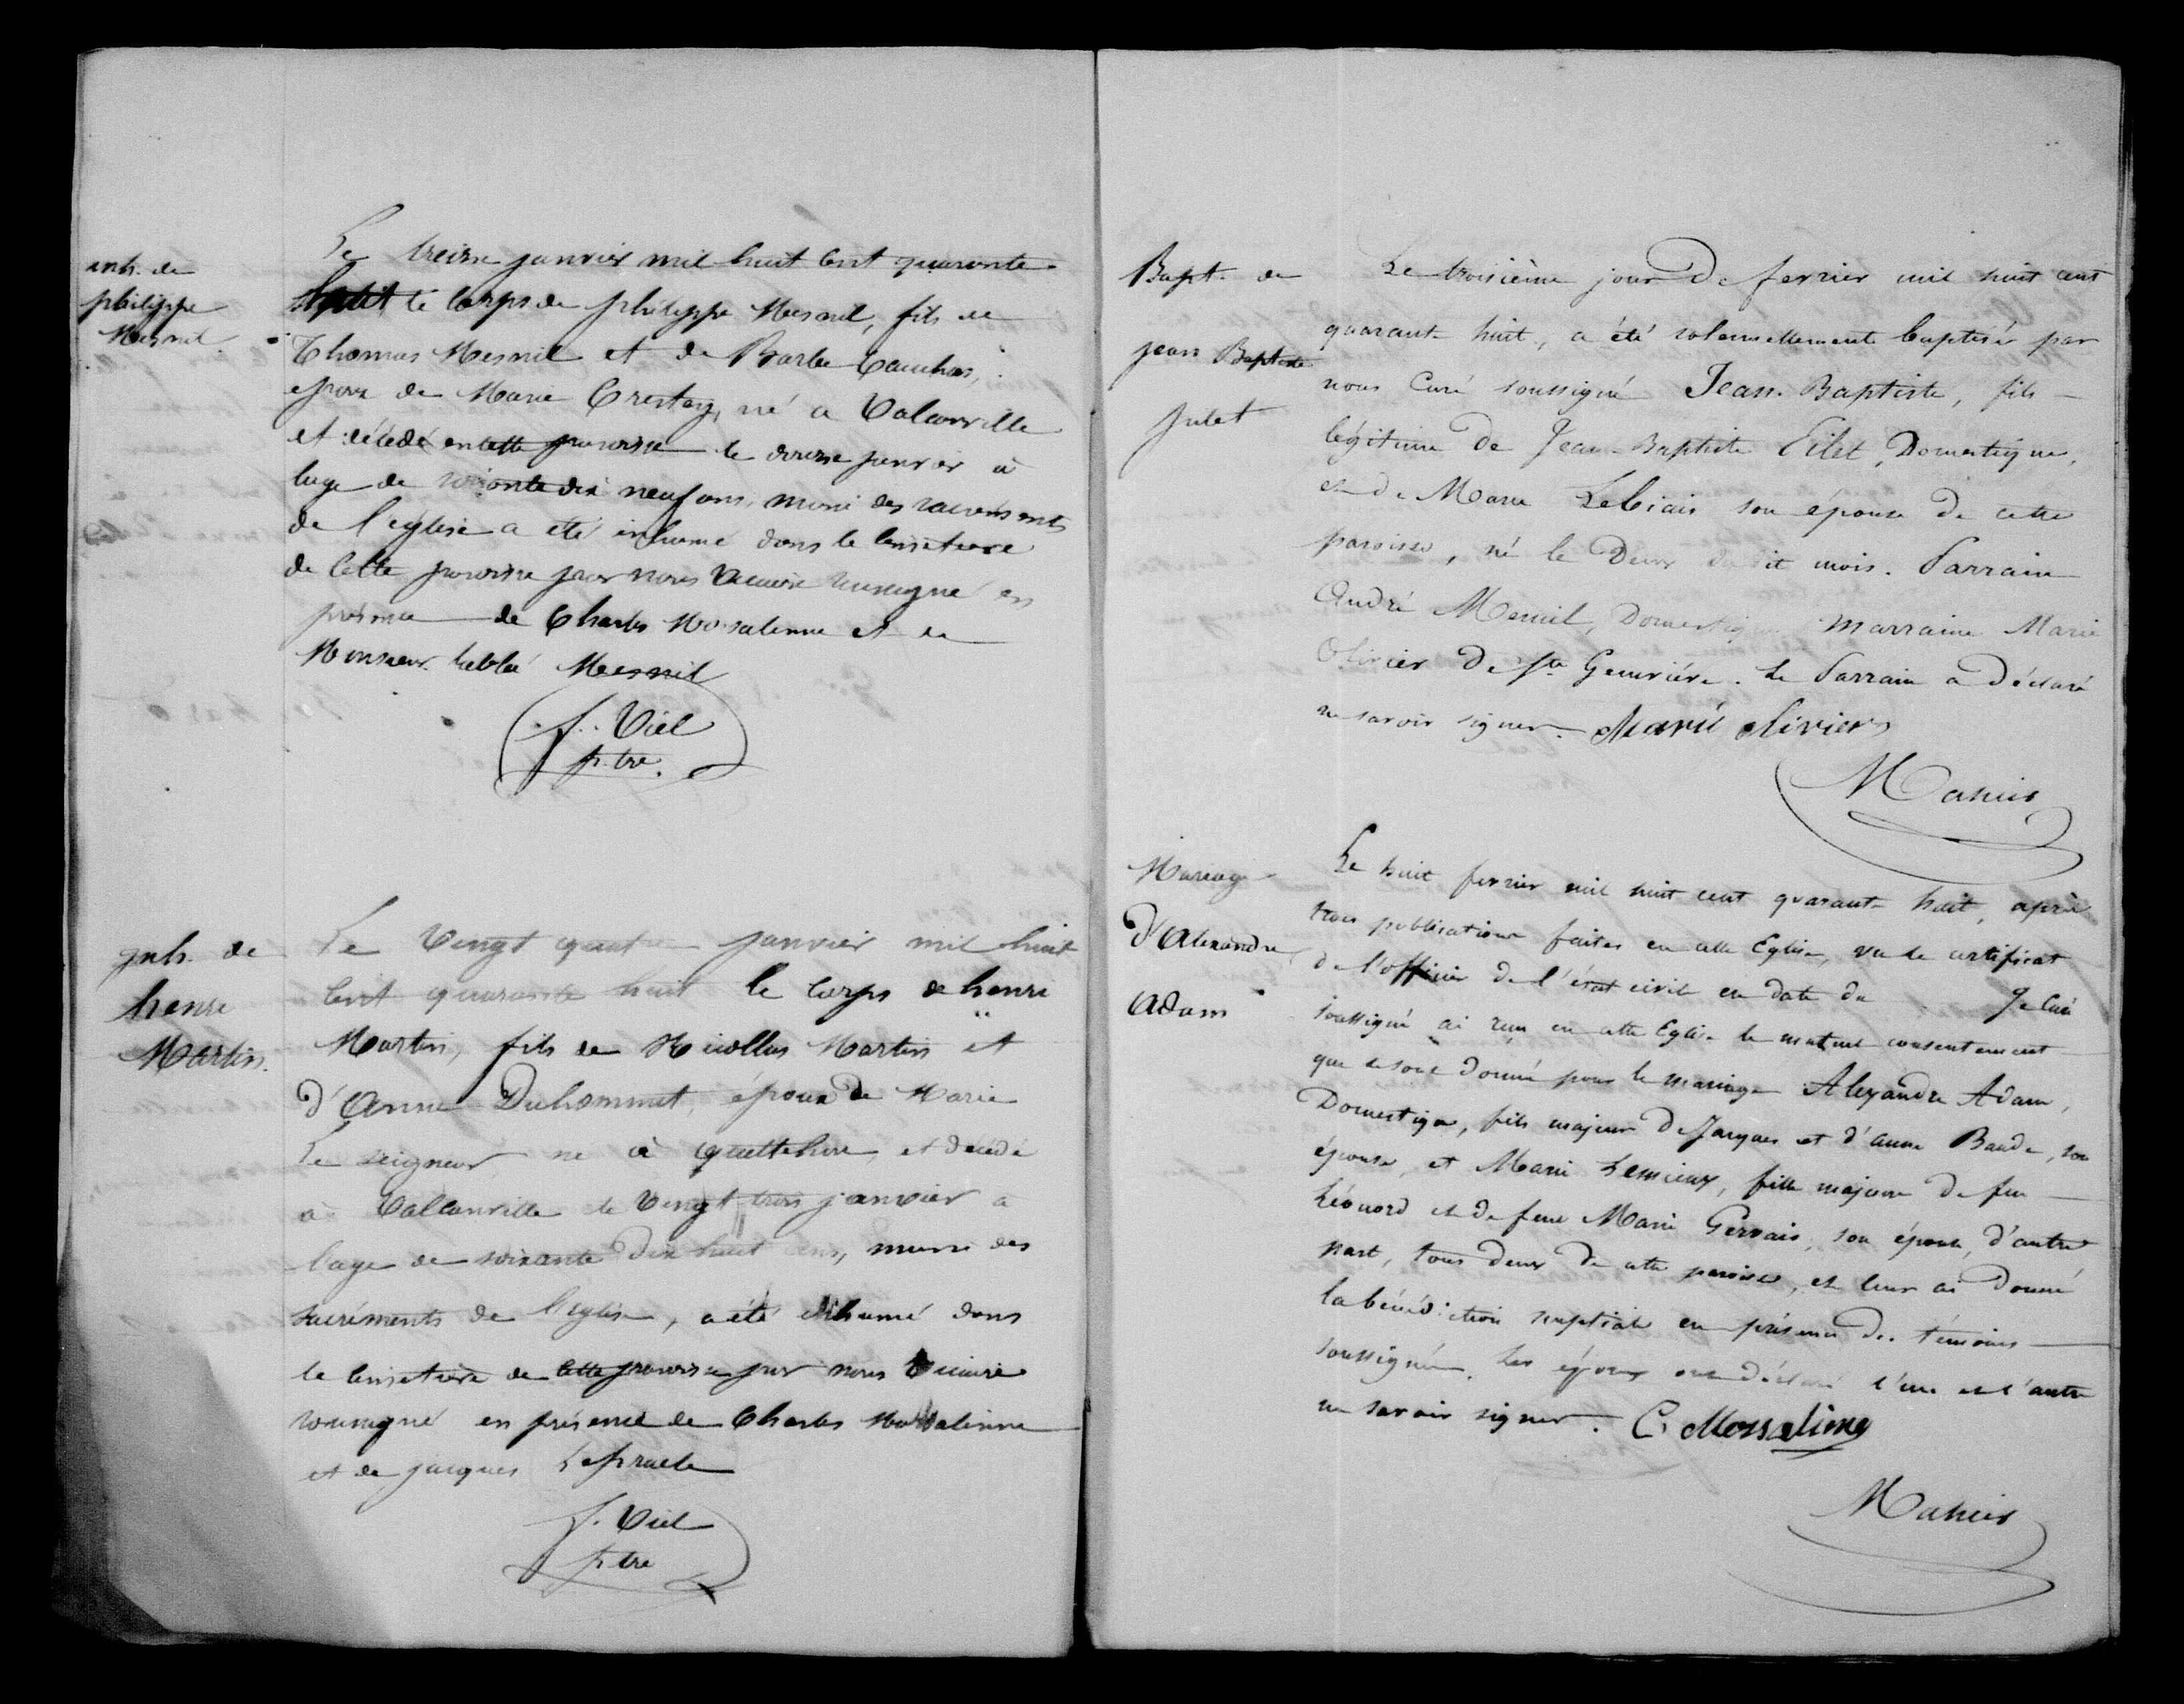 inh. de
philippe
Mesnil
Le treize janvier mil huit cent quarante
huit le corps de philippe Mesnil, fils de
Thomas Mesnil et de Barbe Cauchas,
epoux de Marie Crestey, né a Valcanville
et décédé en cette paroisse le douze janvier à
lage de soixante dix neuf ans, muni des sacréments
de l'église a été inhumé dans le cimetiere
de cette paroisse par nous vicaire soussigné en
présence de Charles Mossalinne et de
Monsieur labbé Mesnil
f. Viel
p.tre.
inh. de
henri
Martin.
Le vingt quatre janvier mil huit
cent quarante huit le corps de henri
Martin, fils de Nicollas Martin et
d'Anne Duhommet, époux de Marie
Le seigneur né à quettehou, et décédé
à Vallanville le vingt trois janvier a
lage de soixante dix huit ans, muni des
sacréments de l'église, a été inhumé dans
le cimetiere de cette paroisse par nous vicaire
soussigné en présence de Charles Mossalinne
et de jacques
f. Viel
ptre
Bapt. de
jean Baptiste
pilet
Le troisième jour de fevrier mil huit cent
quarante huit, a été solennellement baptisé par
nous Curé soussigné Jean-Baptiste, fils
légitime de Jean-Baptiste Pilet, Domestique,
et de Marie LeBiais son épouse de cette
paroisse, né le Deux du dit mois. Parrain
André Mesnil, Domestique marraine Marie
Olivier de Ste Geneviéve. Le Parrain a déclaré
ne savoir signer. Marie Olivier
Mahieu
Mariage
d'Alexandre
Adam
Le huit fevrier mil huit cent quarante huit, après
trois publications faites en cette Eglise, vu le certificat
de l'officier de l'état civil en date du Je Curé
soussigné ai reçu en cette Eglise le mutuel consentement
que se sont donné pour le mariage Alexandre Adam,
Domestique, fils majeur de Jacques et d'anne Baude, son
épouse, et Marie Lemieux, fille majeure de feu
Léonord et de feue Marie Gervais, son épouse, d'autre
part, tous deux de cette paroisse, et leur ai donné
la bénédiction nuptiale en présence des témoins
soussignés. Les époux ont déclaré l'un et l'autre
ne savoir signer. C. Mossaline
Mahieu